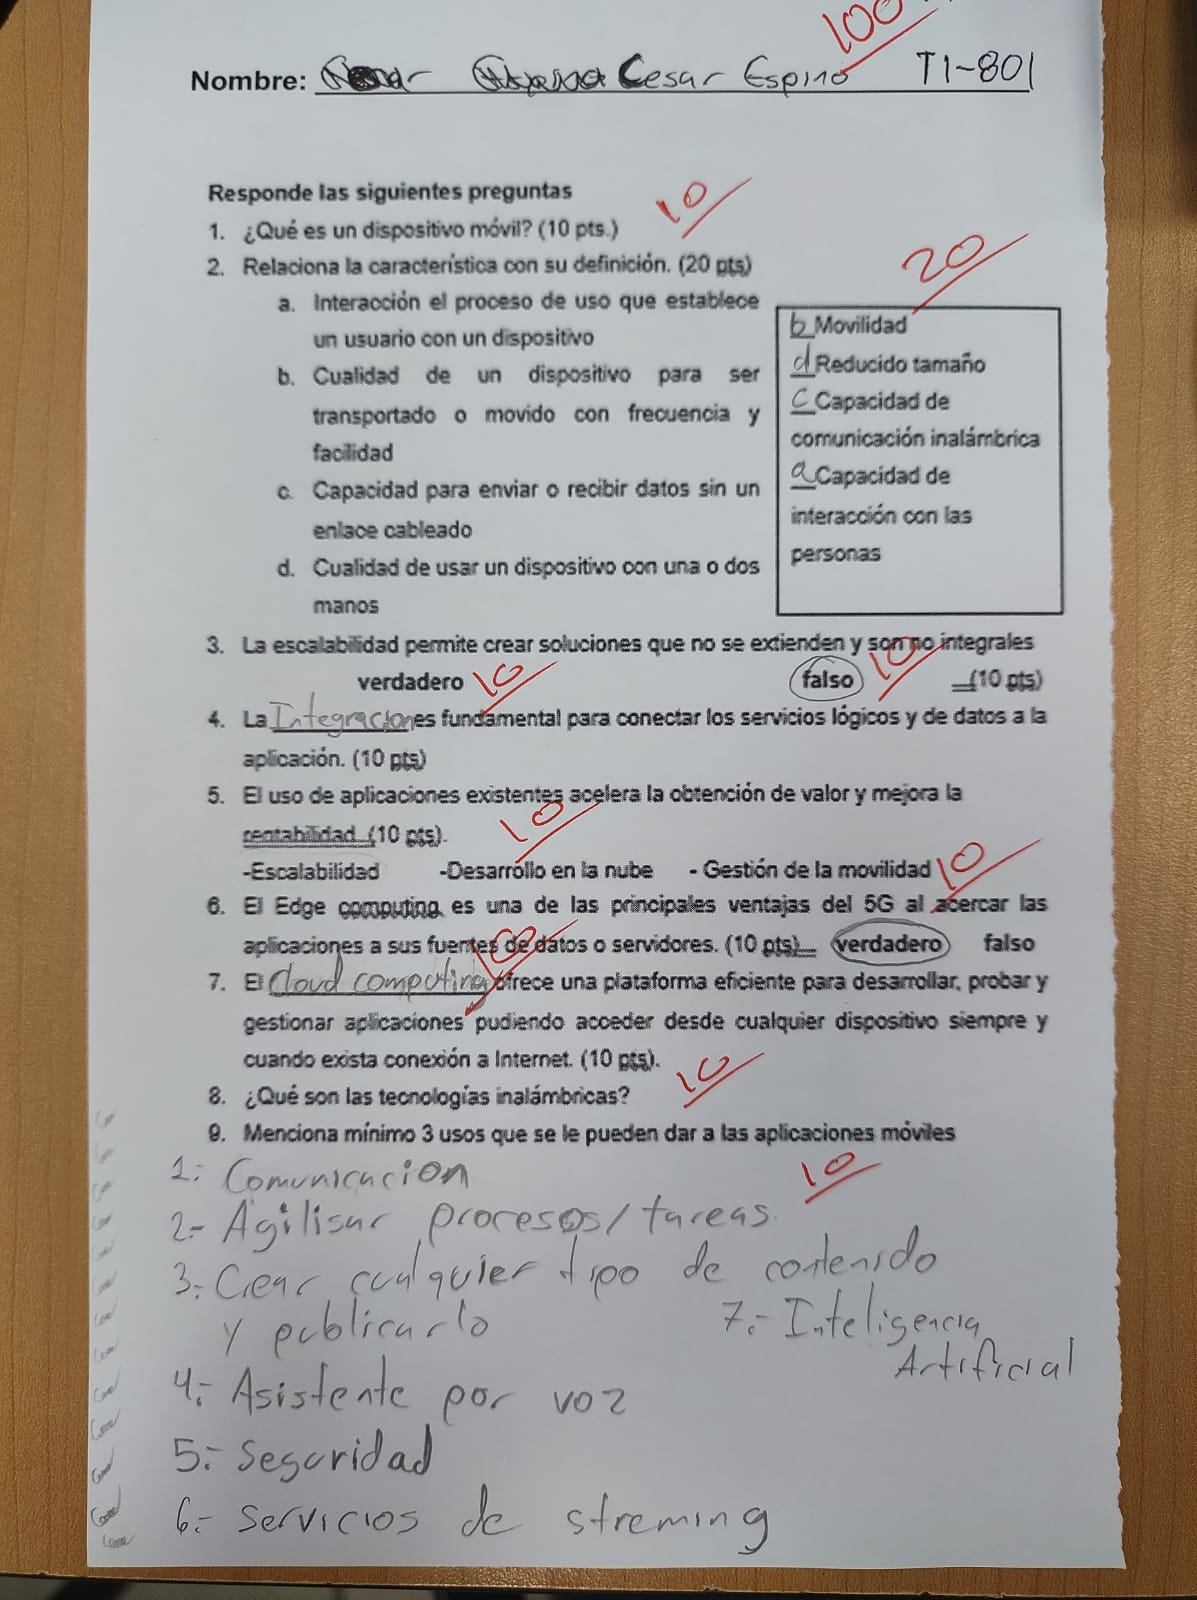 100
Nombre: Cesar Espino TI-801
Responde las siguientes preguntas
10
1. ¿Qué es un dispositivo móvil? (10 pts.)
2. Relaciona la característica con su definición. (20 pts)
20
a. Interacción el proceso de uso que establece
un usuario con un dispositivo
b. Cualidad de un dispositivo para ser
transportado o movido con frecuencia y
facilidad
c. Capacidad para enviar o recibir datos sin un
enlace cableado
d. Cualidad de usar un dispositivo con una o dos
manos
b Movilidad
d Reducido tamaño
c Capacidad de
comunicación inalámbrica
a Capacidad de
interacción con las
personas
3. La escalabilidad permite crear soluciones que no se extienden y son no integrales
verdadero 10 falso 10 (10 pts)
4. La Integracion es fundamental para conectar los servicios lógicos y de datos a la
aplicación. (10 pts)
5. El uso de aplicaciones existentes acelera la obtención de valor y mejora la
rentabilidad (10 pts). 10
-Escalabilidad -Desarrollo en la nube - Gestión de la movilidad 10
6. El Edge computing es una de las principales ventajas del 5G al acercar las
aplicaciones a sus fuentes de datos o servidores. (10 pts) verdadero falso
10
7. El Cloud computing ofrece una plataforma eficiente para desarrollar, probar y
gestionar aplicaciones pudiendo acceder desde cualquier dispositivo siempre y
cuando exista conexión a Internet. (10 pts).
8. ¿Qué son las tecnologías inalámbricas? 10
9. Menciona mínimo 3 usos que se le pueden dar a las aplicaciones móviles
10
1: Comunicacion
2.- Agilisar procesos/tareas.
3.- Crear cualquier tipo de contenido
y publicarlo
7.- Inteligencia
Artificial
4.- Asistente por voz
5.- Seguridad
6.- Servicios de streming